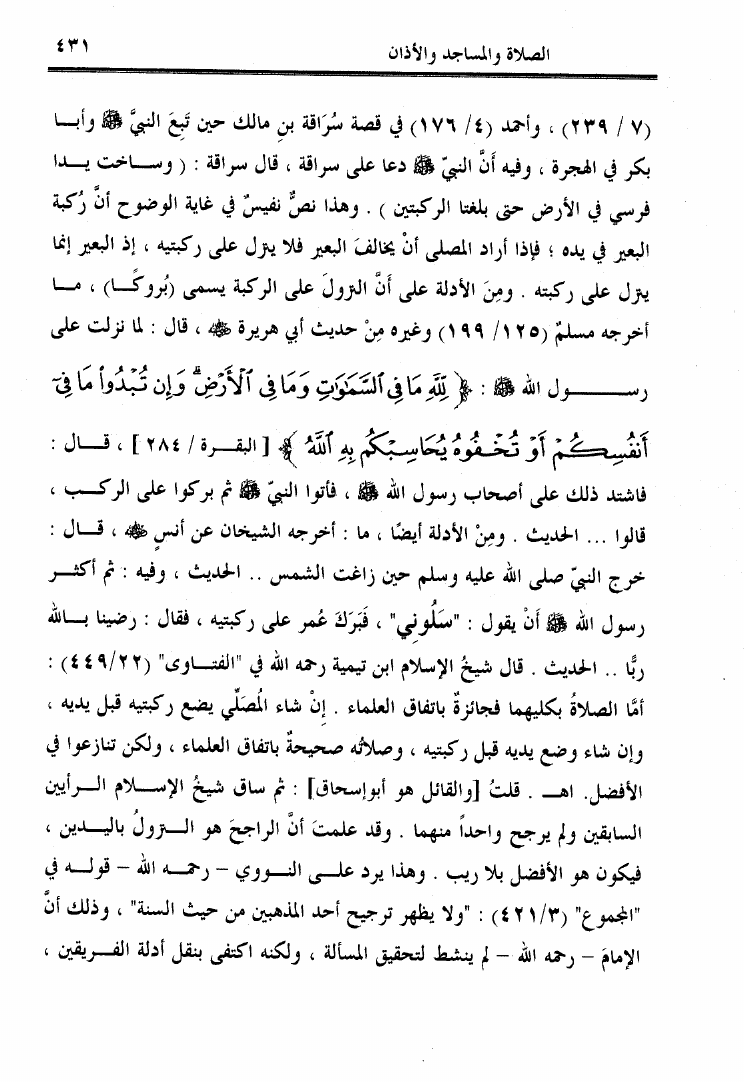 الصلاة والمساجد والأذان
٤٣١
(٧ / ٢٣٩) ، وأحمد (٤/ ١٧٦) في قصة سُرَاقة بنِ مالك حين تَبِعَ النبيَّ ﷺ وأبا
بكر في الهجرة ، وفيه أنَّ النبيّ ﷺ دعا على سراقة ، قال سراقة : ( وساخت يدا
فرسي في الأرض حتى بلغتا الركبتين ) . وهذا نصٌّ نفيسٌ في غاية الوضوح أنَّ رُكبة
البعير في يده ؛ فإذا أراد المصلى أنْ يخالفَ البعير فلا ينزل على ركبتيه ، إذ البعير إنما
ينزل على ركبته . ومِنَ الأدلة على أنَّ النزولَ على الركبة يسمى (بُروكًا) ، ما
أخرجه مسلمٌ (١٢٥/ ١٩٩) وغيره مِنْ حديث أبي هريرة ﷺ ، قال : لما نزلت على
رسول الله ﷺ : ﴿ لِلَّهِ مَا فِي السَّمَٰوَٰتِ وَمَا فِي الْأَرْضِ ۗ وَإِن تُبْدُوا۟ مَا فِىٓ
أَنفُسِكُمْ أَوْ تُخْفُوهُ يُحَاسِبْكُم بِهِ اللَّهُ ﴾ [ البقرة / ٢٨٤ ] ، قال :
فاشتد ذلك على أصحاب رسول الله ﷺ ، فأتوا النبيّ ﷺ ثم بركوا على الركب ،
قالوا ... الحديث . ومِنْ الأدلة أيضًا ، ما : أخرجه الشيخان عن أنسٍ ﷺ ، قال :
خرج النبيّ صلى الله عليه وسلم حين زاغت الشمس .. الحديث ، وفيه : ثم أكثر
رسول الله ﷺ أنْ يقول : "سَلُوني" ، فَبَرَكَ عُمر على ركبتيه ، فقال : رضينا بالله
ربًّا .. الحديث . قال شيخُ الإسلام ابن تيمية رحمه الله في "الفتاوى" (٤٤٩/٢٢) :
أمَّا الصلاةُ بكليهما فجائزةٌ باتفاق العلماء . إنْ شاء المُصَلِّي يضع ركبتيه قبل يديه ،
وإن شاء وضع يديه قبل ركبتيه ، وصلاتُه صحيحةٌ باتفاق العلماء ، ولكن تنازعوا في
الأفضل. اهـ . قلتُ [والقائل هو أبوإسحاق] : ثم ساق شيخُ الإسلام الرأيين
السابقين ولم يرجح واحداً منهما . وقد علمتَ أنَّ الراجحَ هو النزولُ باليدين ،
فيكون هو الأفضل بلا ريب . وهذا يرد على النووي – رحمه الله – قوله في
"المجموع" (٤٢١/٣) : "ولا يظهر ترجيح أحد المذهبين من حيث السنة" ، وذلك أنَّ
الإمامَ – رحمه الله – لم ينشط لتحقيق المسألة ، ولكنه اكتفى بنقل أدلة الفريقين ،